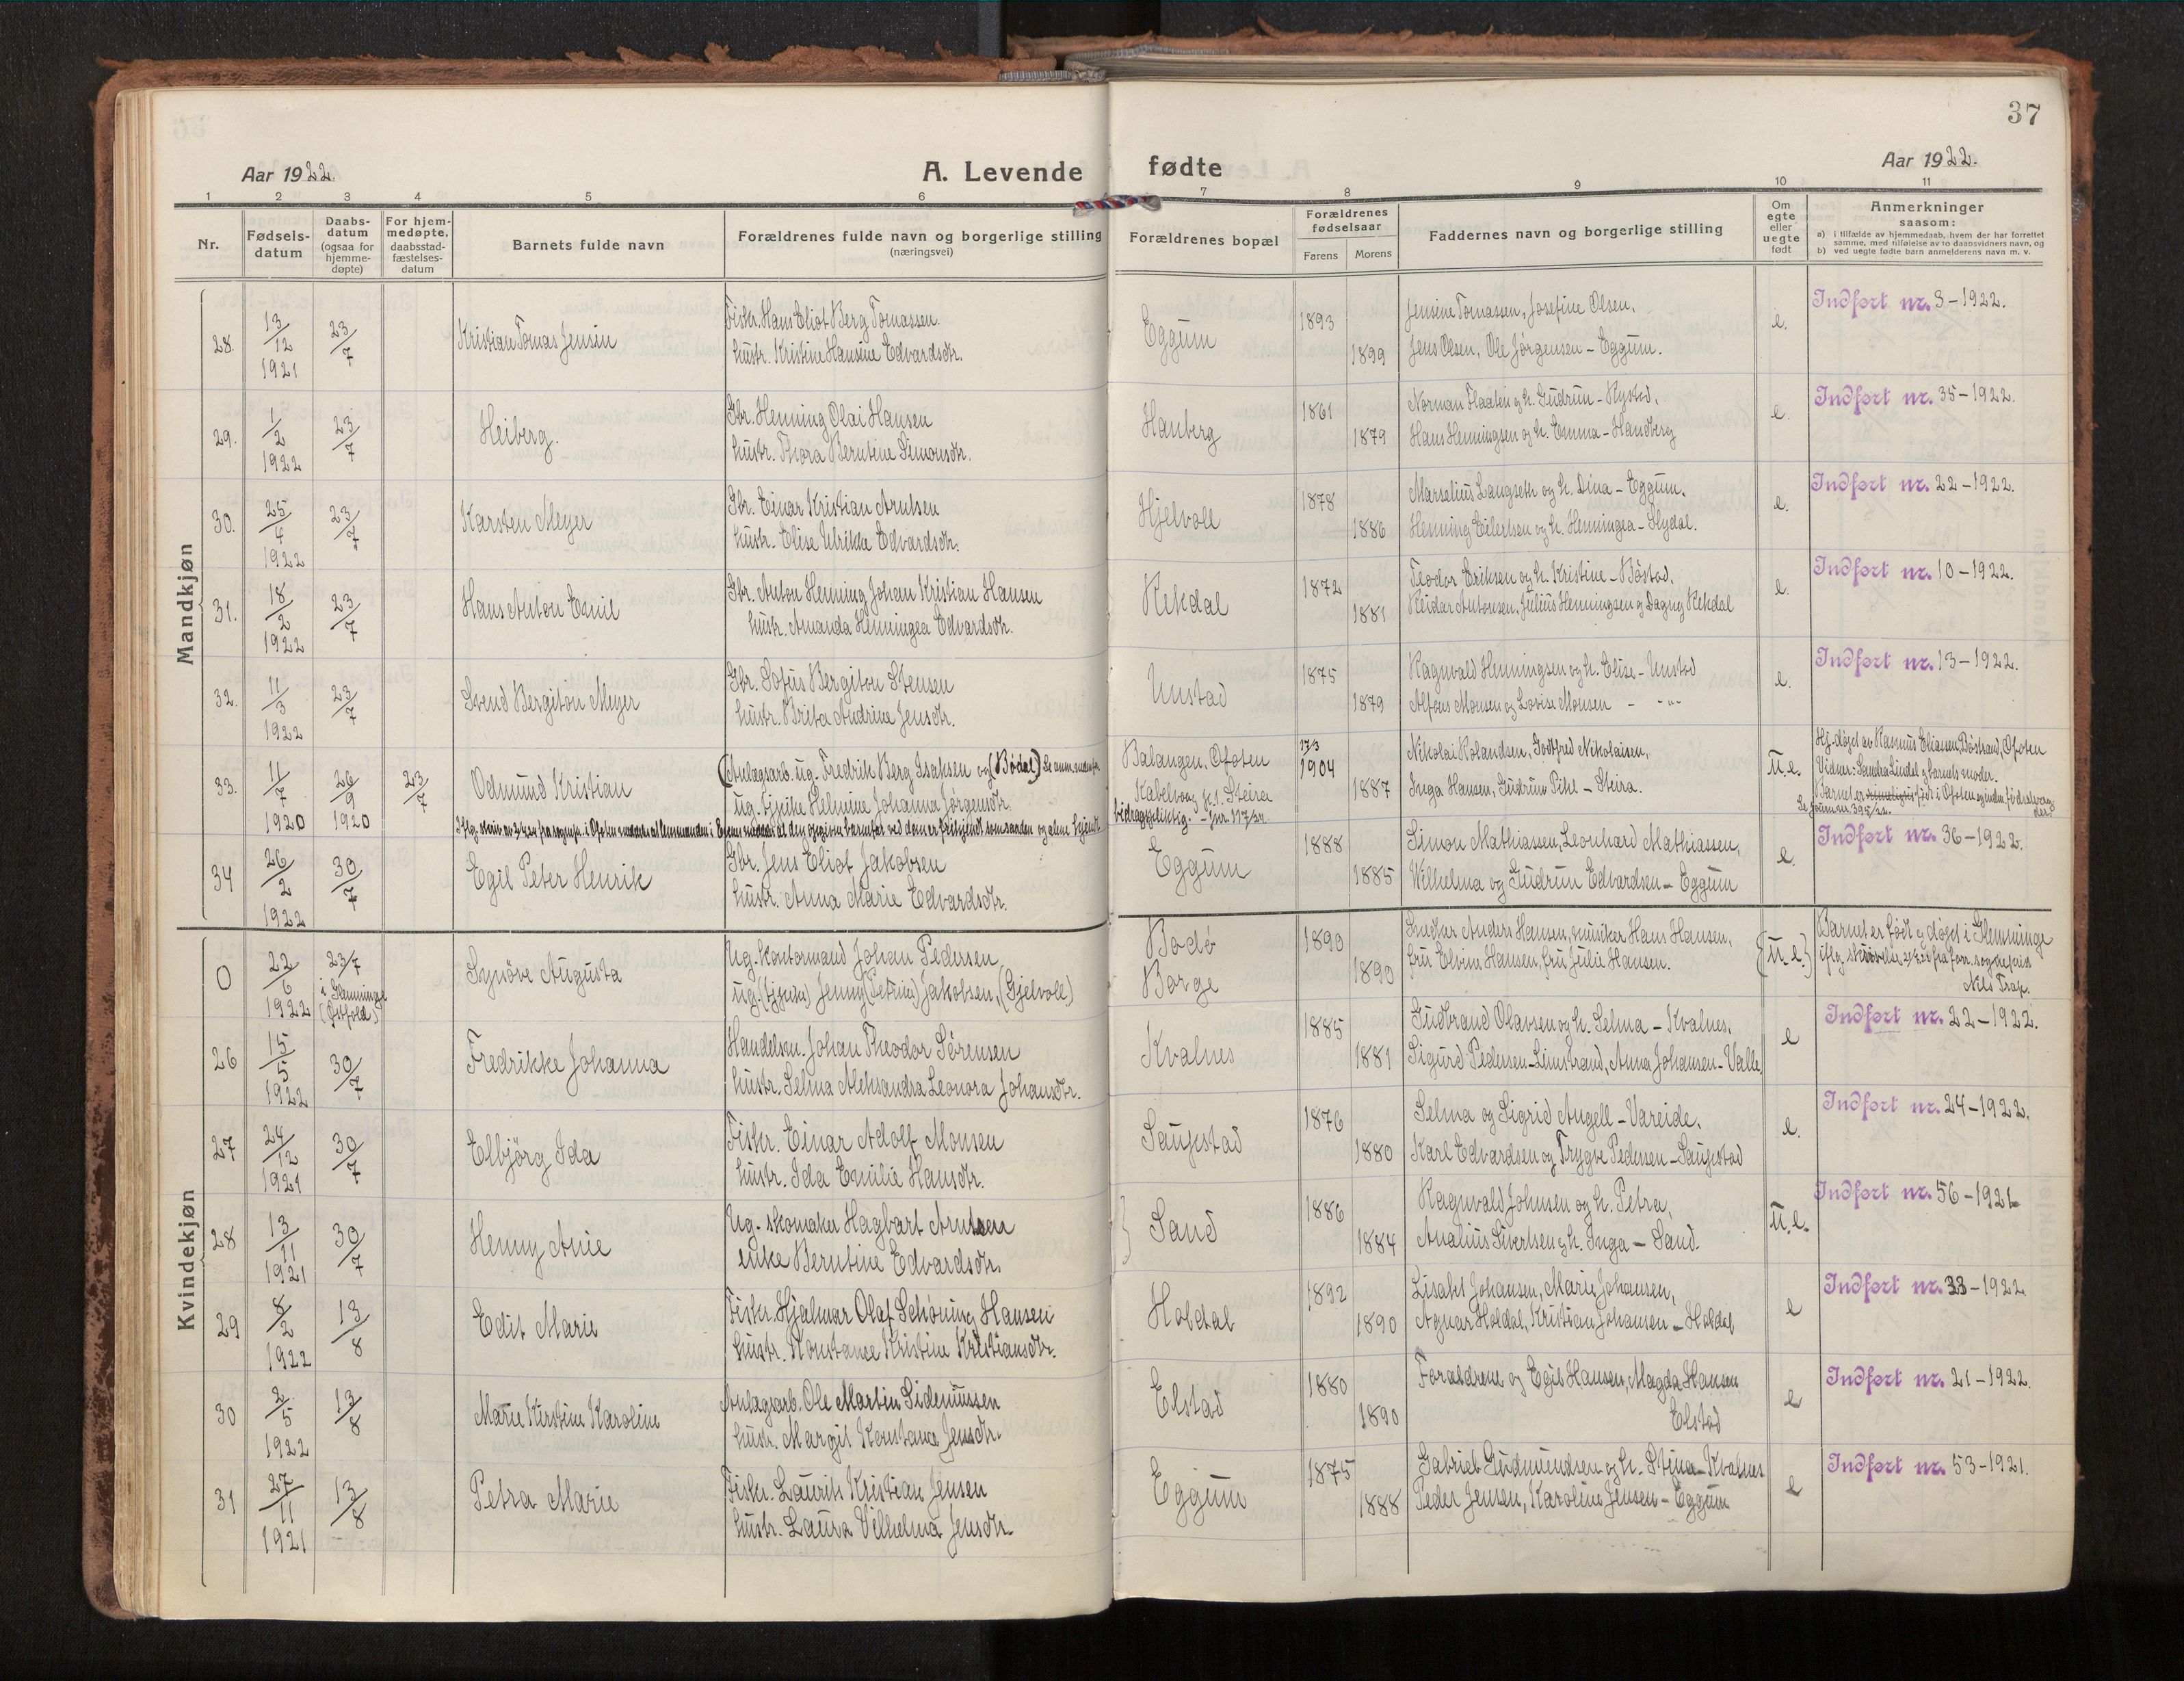 37
Aar 1922.
A. Levende fødte
Aar 1922.
1 2 3 4 5 6 7 8 9 10 11
Nr.
Fødsels-
datum
Daabs-
datum
(ogsaa for
hjemme-
døpte)
For hjem-
medøpte,
daabsstad-
fæstelses-
datum
Barnets fulde navn
Forældrenes fulde navn og borgerlige stilling
(næringsvei)
Forældrenes bopæl
Forældrenes
fødselsaar
Farens Morens
Faddernes navn og borgerlige stilling
Om
egte
eller
uegte
født
Anmerkninger
saasom:
a) i tilfælde av hjemmedaab, hvem der har forrettet
samme, med tilføielse av to daabsvidners navn, og
b) ved uegte fødte barn anmelderens navn m. v.
Mandkjøn
28. 13/12 1921 23/7 Kristian Tomas Jensin
Fisker. Hans Eliot Berg Tomassen.
hustr. Kristine Hansine Edvardsdtr.
Eggum 1893 1899
Jensine Tomassen, Josefine Olsen,
Jens Olsen, Ole Jørgensen - Eggum.
e. Indført nr. 3-1922.
29. 1/2 1922 23/7 Heiberg.
Gbr. Henning Olai Hansen
hustr. Thora Berntine Simonsdtr.
Hanberg 1861 1879
Norman Flaaten og h. Gudrun - Rystad,
Hans Henningsen og h. Emma - Handberg
e. Indført nr. 35-1922.
30. 25/4 1922 23/7 Karsten Meyer
Gbr. Einar Kristian Arntsen
hustr. Elise Ulrikke Edvardsdtr.
Hjelvoll 1878 1886
Marselius Langseth og h. Dina - Eggum.
Henning Eilertsen og h. Henningea - Slydal.
e. Indført nr. 22-1922.
31. 18/2 1922 23/7 Hans Anton Emil
Gbr. Anton Henning Johan Kristian Hansen
hustr. Amanda Henningea Edvardsdtr.
Rekdal 1872 1881
Teodor Eriksen og h. Kristine - Bøstad.
Reidar Antonsen, Julius Henningsen og Dagny Rekdal
e. Indført nr. 10-1922.
32. 11/3 1922 23/7 Svend Bergiton Meyer
Gbr. Sofus Bergiton Stensen
hustr. Brita Andrine Jensdtr.
Unstad 1875 1879
Ragnvald Henningsen og h. Elise - Unstad
Alfons Monsen og Lovise Monsen - -"-
e. Indført nr. 13-1922.
33. 11/7 1920 26/9 1920 23/7 Odmund Kristian
(Anlægsarb. ug. Fredrik Berg Isaksen og (Bødal) Se anm. nedenfr.
ug. tjpike Helmine Johanna Jørgensdtr.
Balangen, Ofoten
Kabelvaag p.t. Steira
bidragspliktig.
17/3 1904 1887
Nikolai Rolandsen, Godtfred Nikolaisen,
Inga Hansen, Gudrun Pihl - Steira.
u.e.
Hj. døpt av Rasmus Eliassen, Bøstrand, Ofoten
Vidner: Sandra Lindal og barnets moder.
34 26/2 1922 30/7 Egil Peter Henrik
Gbr. Jens Eliot Jakobsen
hustr. Anna Marie Edvardsdtr.
Eggum 1888 1885
Simon Mathiassen, Leonhard Mathiassen,
Wilhelma og Gudrun Edvardsen - Eggum
e. Indført nr. 36-1922.
Kvindekjøn
0 22/6 1922 23/7 i Glemminge (Østfold) Synöve Augusta
Ug. Kontormand Johan Pedersen
ug. (tjpike) Jenny (Petrine) Jakobsen, (Gjelvoll)
Bodö
Borge
1890 1890
Snedker Anders Hansen, musiker Hans Hansen,
fru Elvine Hansen, fru Julie Hansen.
(u.e.)
Barnet er født og døpt i Glemminge
Nils Trap.
26 15/5 1922 30/7 Fredrikke Johanna
Handelsm. Johan Theodor Sörensen
hustr. Selma Aleksandra Leonora Johansdtr.
Kvalnes 1885 1881
Gudbrand Olavsen og h. Selma - Kvalnes.
Sigurd Pedersen - Limstrand, Anna Johansen - Valle.
e Indført nr. 22-1922.
27 24/12 1921 30/7 Elbjörg Ida
Fisker. Einar Adolf Monsen
hustr. Ida Emilie Hansdtr.
Saupstad 1876 1880
Selma og Sigrid Angell - Vareide.
Karl Edvardsen og Trygve Pedersen - Saupstad
e. Indført nr. 24-1922.
28 13/11 1921 30/7 Henny Anie
Ug. skomaker Hagbart Arntsen
enke Berntine Edvardsdtr.
Sand 1886 1884
Ragnvald Johnsen og h. Petra,
Analius Sivertsen og h. Inga - Sand.
u.e. Indført nr. 56-1921
29 8/2 1922 13/8 Edit Marie
Fisker. Hjalmar Olaf Schöning Hansen
hustr. Konstance Kristine Kristiansdtr.
Holdal 1892 1890
Lisabet Johansen, Marie Johansen,
Agnar Holdal, Kristian Johansen - Holdal
e Indført nr. 33-1922
30 2/5 1922 13/8 Marie Kirstine Karoline
Anlægsarb. Ole Martin Sideniussen
hustr. Margit Konstance Jensdtr.
Elstad 1880 1890
Forældrene og Egil Hansen, Magda Hansen
Elstad
e Indført nr. 21-1922.
31 27/11 1921 13/8 Petra Marie
Fisker. Laurits Kristian Jensen
hustr. Laura Vilhelma Jensdtr
Eggum 1875 1888
Gabriel Gudmundsen og h. Stina - Kvalnes
Peder Jensen, Karoline Jensen - Eggum
e Indført nr. 53-1921.